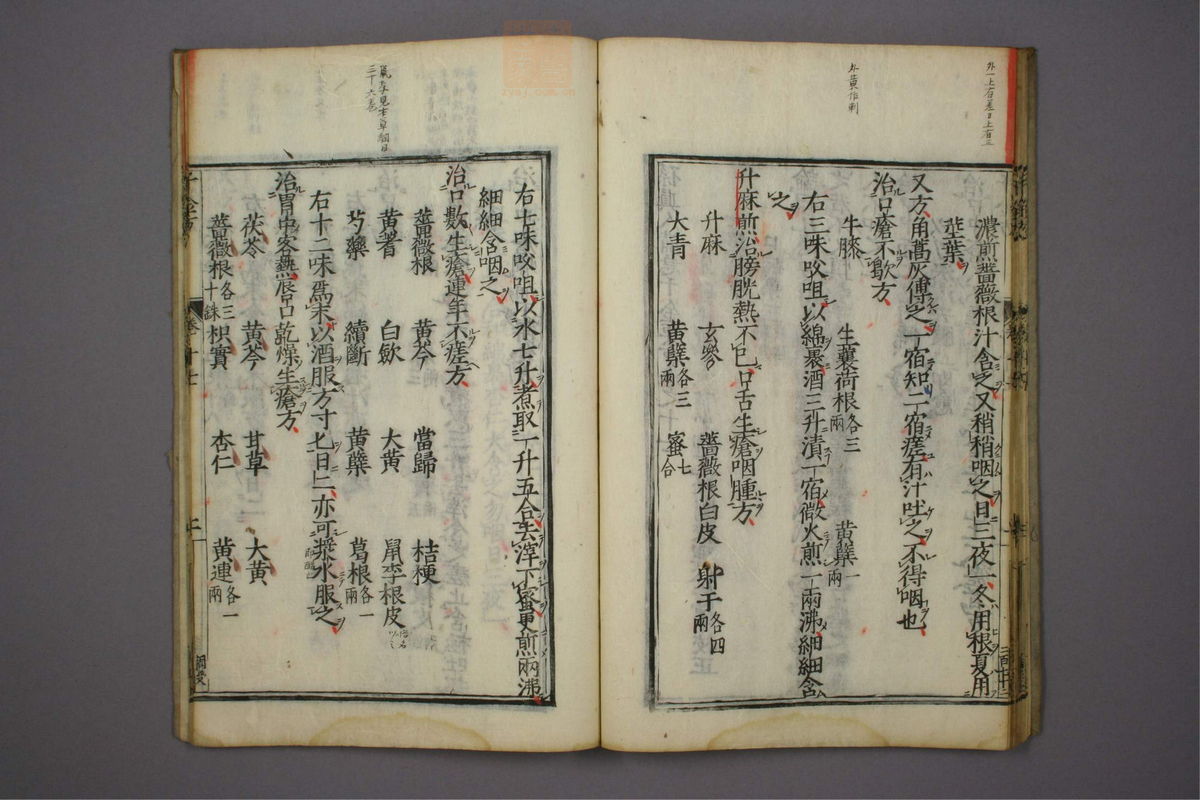 濃煎薔薇根汁含之又稍稍咽之日三夜一冬用根夏用
莖葉
又方角蒿灰傅之一宿知二宿瘥有汁吐之不得咽也
治口瘡不歇方
牛膝 生蘘荷根各三兩 黃蘗一兩
右三味㕮咀以綿裹酒三升漬一宿微火煎一兩沸細細含
之
升麻煎治膀胱熱不已口舌生瘡咽腫方
升麻 玄參 薔薇根白皮 射干各四兩
大青 黃蘗各三兩 蜜七合
右七味㕮咀以水七升煮取一升五合去滓下蜜更煎兩沸
細細含咽之
治口數生瘡連年不瘥方
薔薇根 黃芩 當歸 桔梗
黃耆 白歛 大黃 鼠李根皮
芍藥 續斷 黃蘗 葛根各一兩
右十二味爲末以酒服方寸匕日二亦可漿水服之
治胃中客熱唇口乾燥生瘡方
茯苓 黃芩 甘草 大黃
薔薇根各三十銖 枳實 杏仁 黃連各一兩